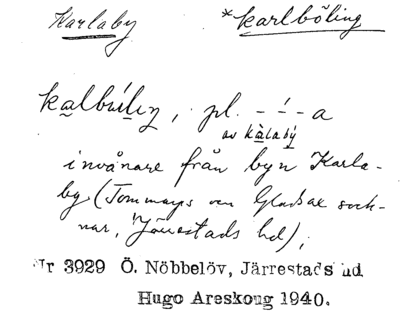 Karlaby *karlböling
kalbúlıŋ, pl. – ́ – a
av kàlabý
invånare från byn Karla-
by (Tommarps och Gladsax sock-
nar, Järrestads hd);
Nr 3929 Ö. Nöbbelöv, Järrestads hd
Hugo Areskoug 1940.